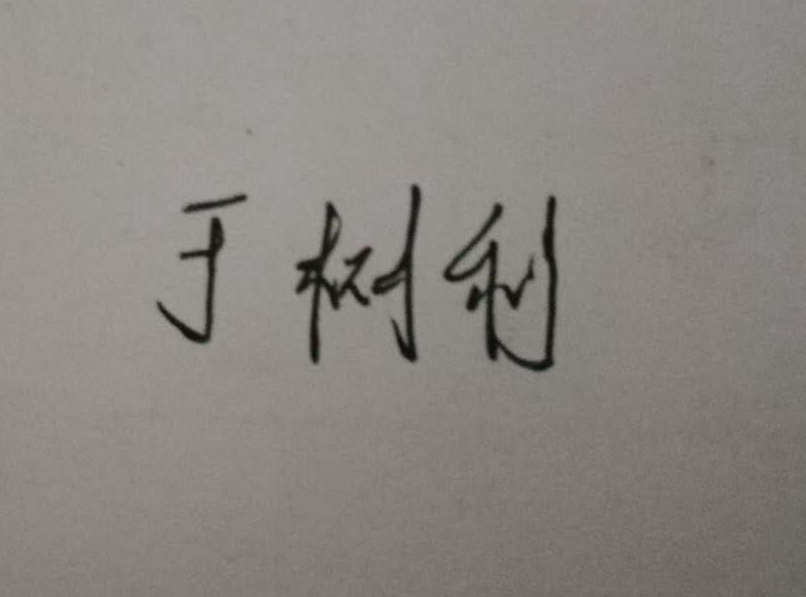 于树利